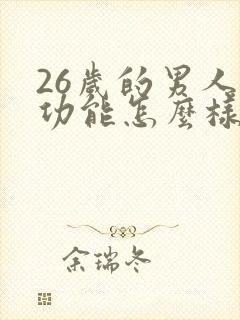 26歲的男人
功能怎麼樣
余瑞冬